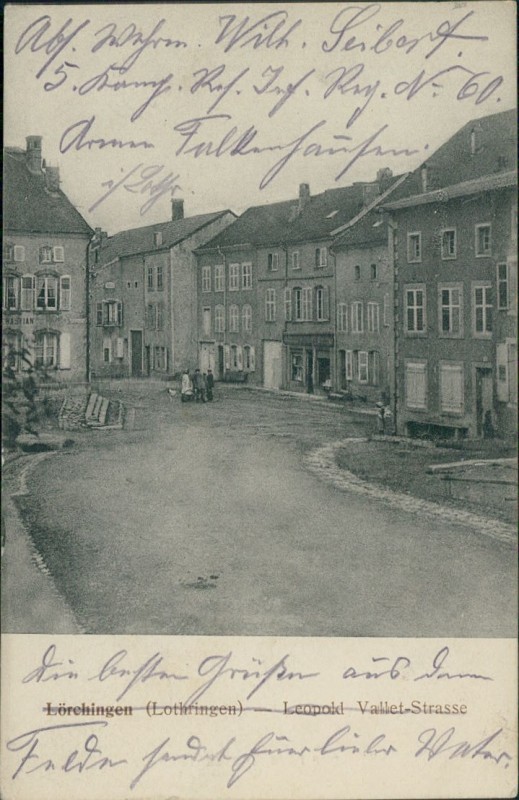 Abs. Wehrm. Wilh. Seibert.
5. Komp. Res. Inf. Reg. No 60.
Armee Falkenhausen.
i/ Lothr.
Die besten Grüße aus dem
Lörchingen (Lothringen) — Leopold Vallet-Strasse
Felde sendet Euer lieber Vater.